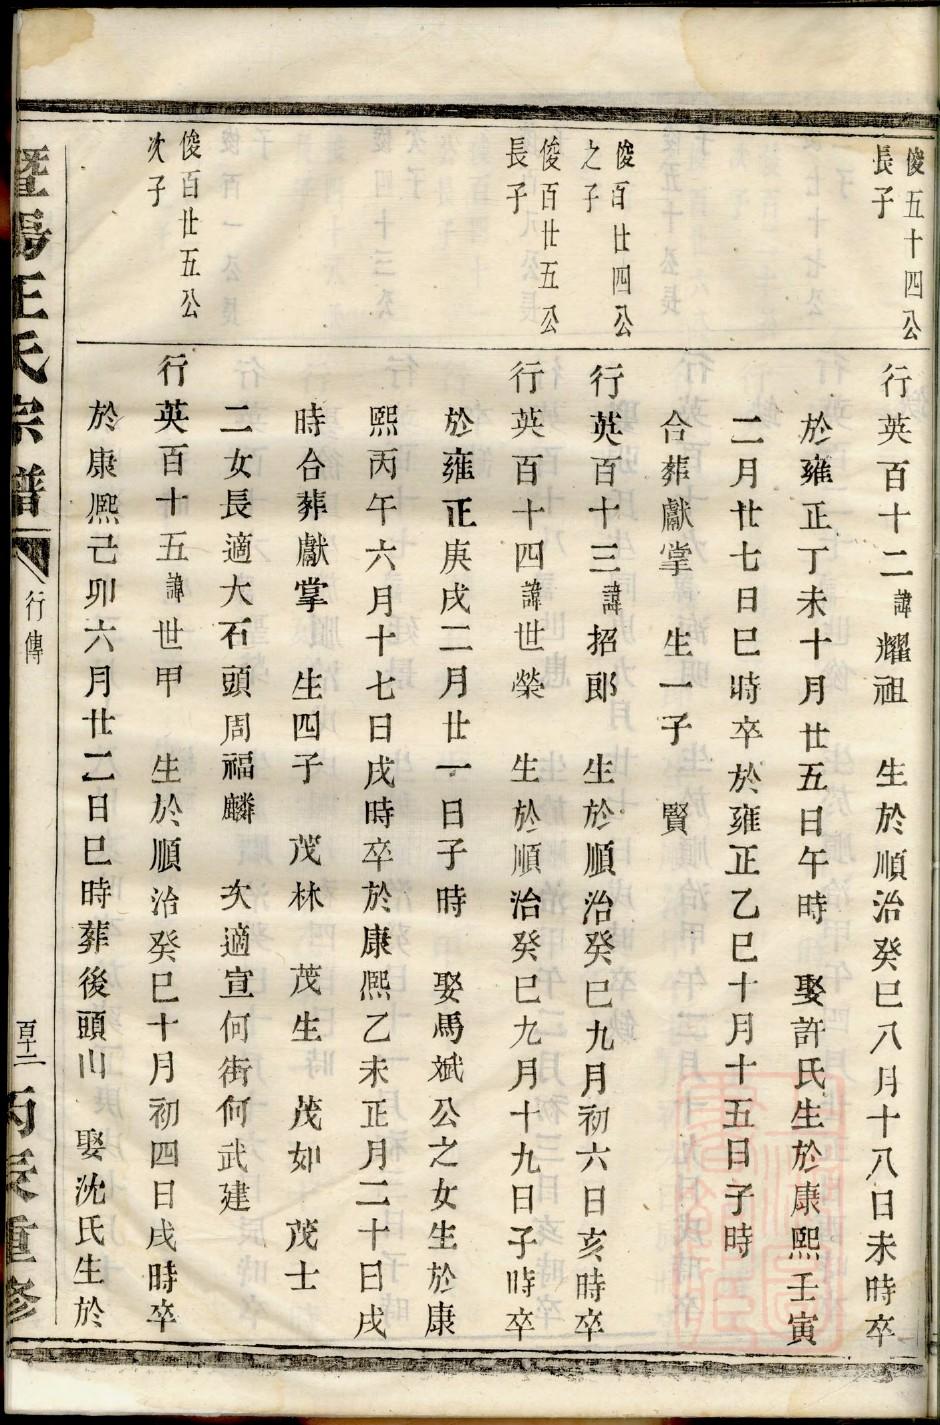 俊五十四公
長子
行英百十二諱耀祖　生於順治癸巳八月十八日未時卒
於雍正丁未十月廿五日午時　娶許氏生於康熙壬寅
二月廿七日巳時卒於雍正乙巳十月十五日子時
合葬獻掌　生一子　賢
俊百廿四公
之子
行英百十三諱招郎　生於順治癸巳九月初六日亥時卒
俊百廿五公
長子
行英百十四諱世榮　生於順治癸巳九月十九日子時卒
於雍正庚戌二月廿一日子時　娶馬斌公之女生於康
熙丙午六月十七日戌時卒於康熙乙未正月二十日戌
時合葬獻掌　生四子　茂林　茂生　茂如　茂士
二女長適大石頭周福麟　次適宣何街何武建
俊百廿五公
次子
行英百十五諱世甲　生於順治癸巳十月初四日戌時卒
於康熙己卯六月廿二日巳時葬後頭山　娶沈氏生於
暨陽王氏宗譜
行傳
百十二
丙辰重修